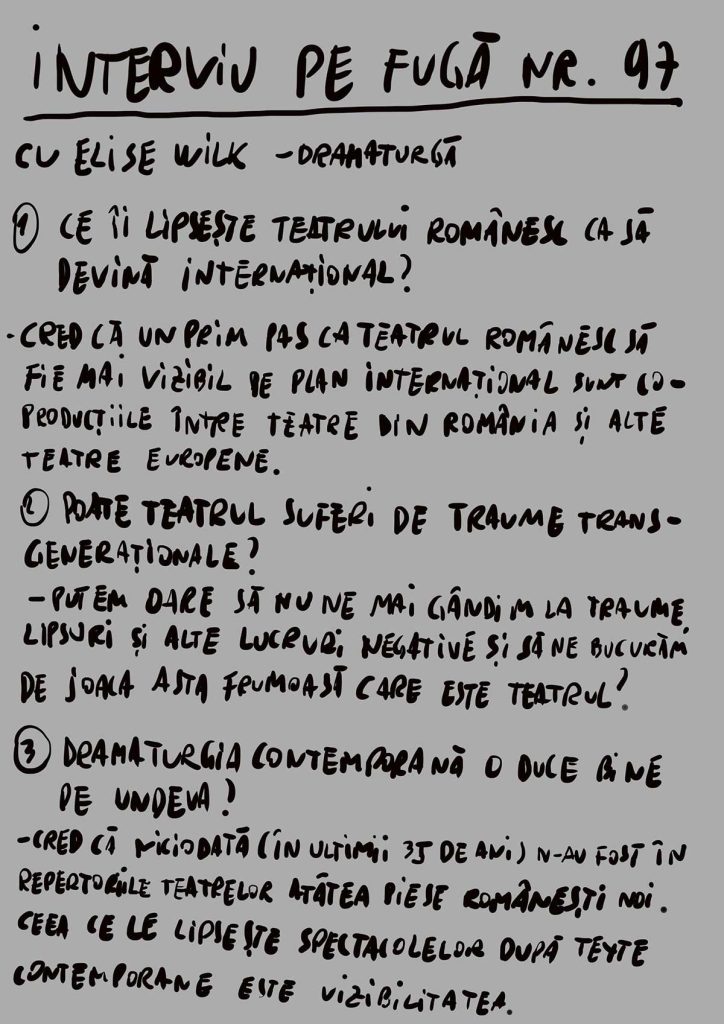 INTERVIU PE FUGĂ NR. 97
CU ELISE WILK - DRAMATURGĂ
1 CE ÎI LIPSEȘTE TEATRULUI ROMÂNESC CA SĂ
DEVINĂ INTERNAȚIONAL?
- CRED CĂ UN PRIM PAS CA TEATRUL ROMÂNESC SĂ
FIE MAI VIZIBIL PE PLAN INTERNAȚIONAL SUNT CO-
PRODUCȚIILE ÎNTRE TEATRE DIN ROMÂNIA ȘI ALTE
TEATRE EUROPENE.
2 POATE TEATRUL SUFERI DE TRAUME TRANS-
GENERAȚIONALE?
- PUTEM OARE SĂ NU NE MAI GÂNDIM LA TRAUME,
LIPSURI ȘI ALTE LUCRURI NEGATIVE ȘI SĂ NE BUCURĂM
DE JOACA ASTA FRUMOASĂ CARE ESTE TEATRUL?
3 DRAMATURGIA CONTEMPORANĂ O DUCE BINE
PE UNDEVA?
- CRED CĂ NICIODATĂ (ÎN ULTIMII 35 DE ANI) N-AU FOST ÎN
REPERTORIILE TEATRELOR ATÂTEA PIESE ROMÂNEȘTI NOI.
CEEA CE LE LIPSEȘTE SPECTACOLELOR DUPĂ TEXTE
CONTEMPORANE ESTE VIZIBILITATEA.